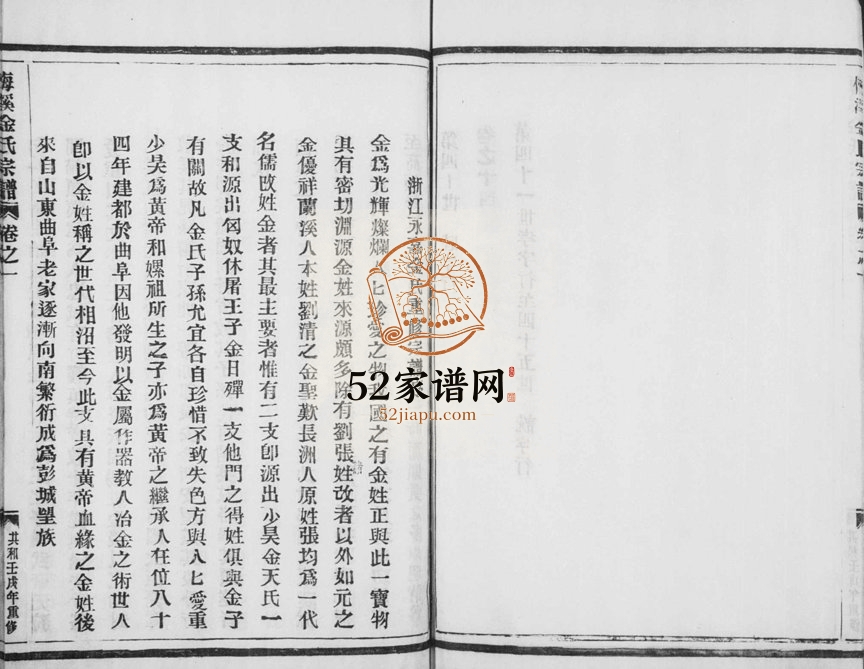 浙江永
金氏重修宗譜
金爲光輝燦爛人七珍愛之物我國之有金姓正與此一寶物
具有密切淵源金姓來源頗多除有劉張姓改者以外如元之
金優祥蘭溪人本姓劉清之金聖歎長洲人原姓張均爲一代
名儒改姓金者其最主要者惟有二支卽源出少昊金天氏一
支和源出匈奴休屠王子金日殫一支他門之得姓俱與金子
有關故凡金氏子孫尤宜各自珍惜不致失色方與人七愛重
少昊爲黃帝和嫘祖所生之子亦爲黃帝之繼承人在位八十
四年建都於曲阜因他發明以金屬作器敎人冶金之術世人
卽以金姓稱之世代相沿至今此支具有黃帝血緣之金姓後
來自山東曲阜老家逐漸向南繁衍成爲彭城望族
梅溪金氏宗譜
卷之一
共和壬戌年重修
52家谱网
52jiapu.com